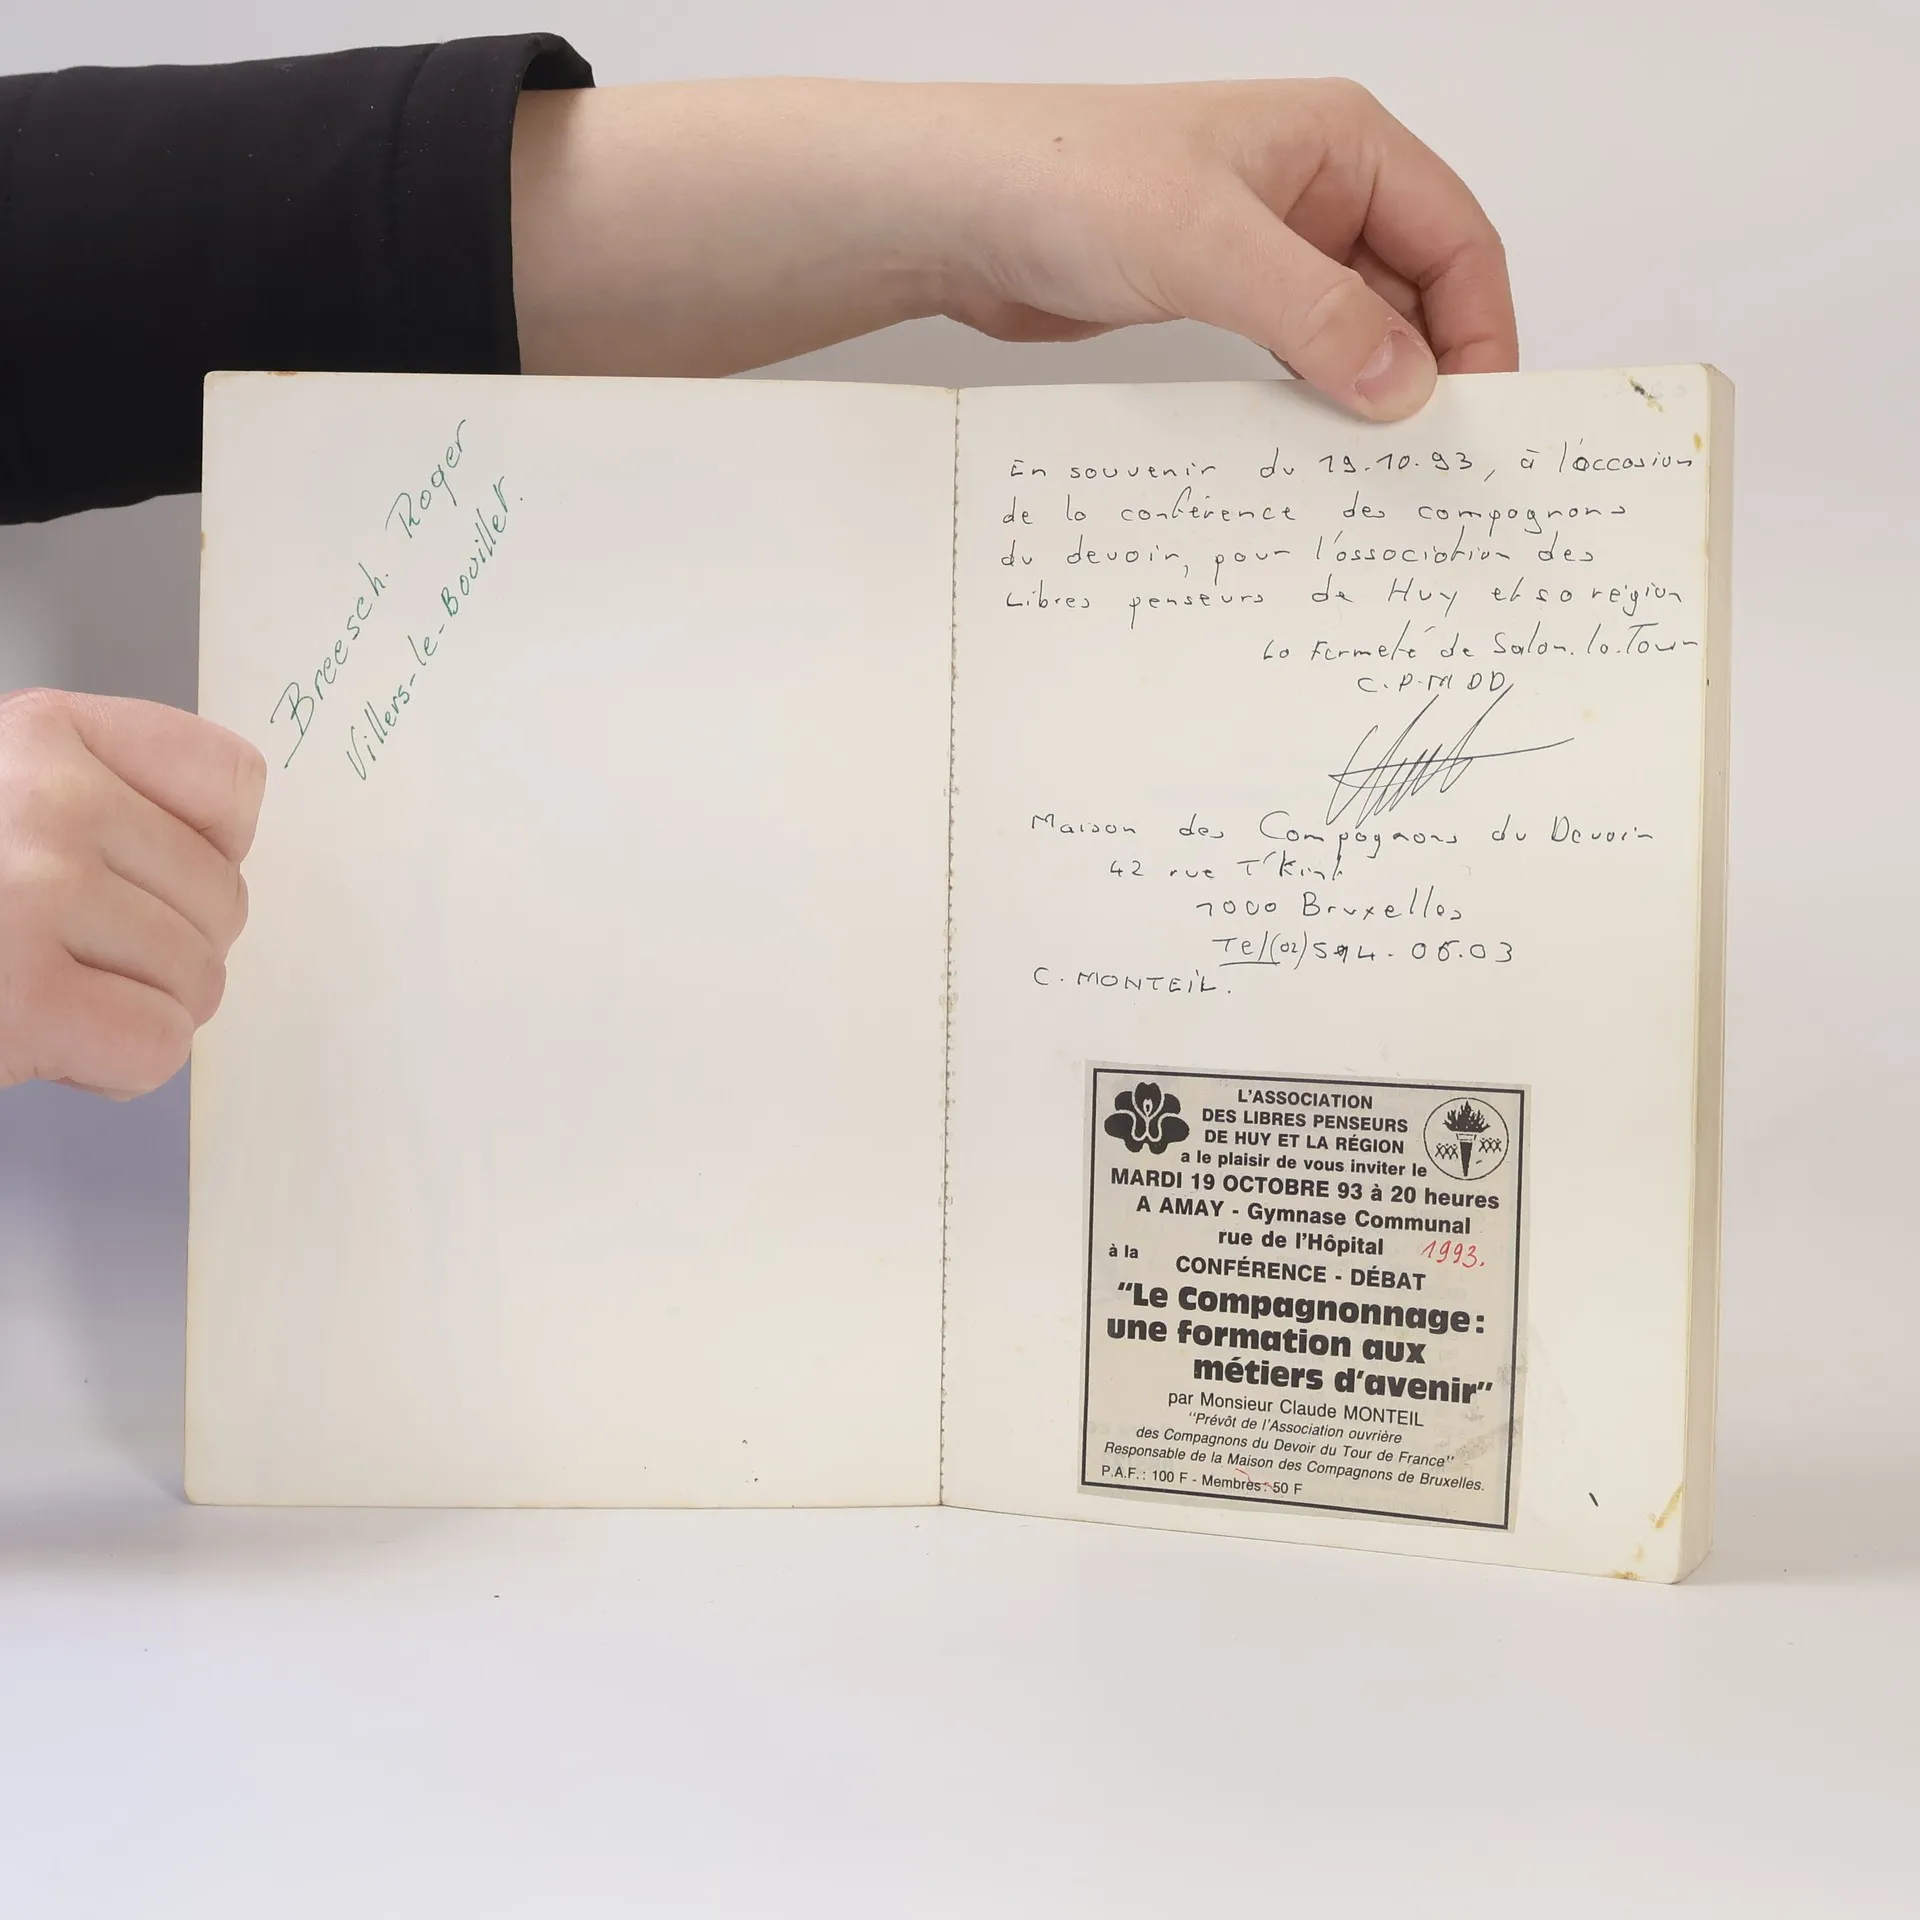 Breesch. Roger
Villers-le-Bouillet.
En souvenir du 19.10.93, à l'occasion
de la conférence des compagnons
du devoir, pour l'association des
Libres penseurs de Huy et sa région
La Fermeté de Salon.la.Tour
C.P.M DD
Maison des Compagnons du Devoir
42 rue T'Kint
1000 Bruxelles
Tel (02) 514.06.03
C. MONTEIL.
L'ASSOCIATION
DES LIBRES PENSEURS
DE HUY ET LA RÉGION
a le plaisir de vous inviter le
MARDI 19 OCTOBRE 93 à 20 heures
A AMAY - Gymnase Communal
rue de l'Hôpital 1993.
à la CONFÉRENCE - DÉBAT
"Le Compagnonnage:
une formation aux
métiers d'avenir"
par Monsieur Claude MONTEIL
"Prévôt de l'Association ouvrière
des Compagnons du Devoir du Tour de France"
Responsable de la Maison des Compagnons de Bruxelles.
P.A.F.: 100 F - Membres: 50 F